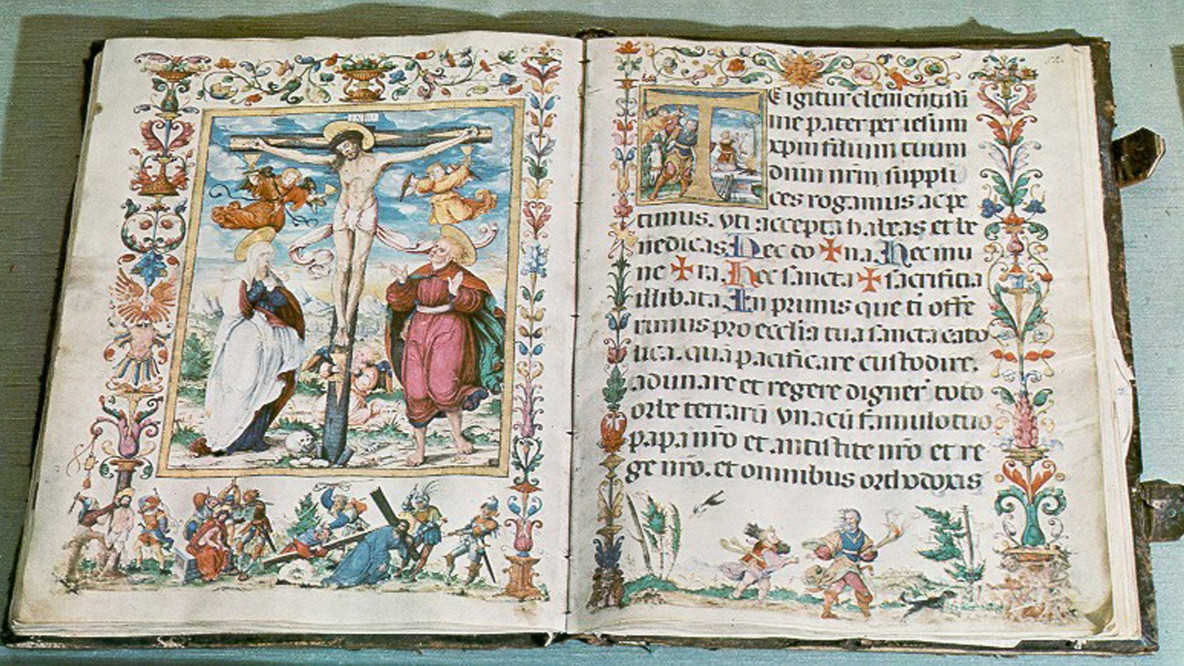 INRI
TE igitur clementissi
me pater per iesum
xpm filium tuum
dnm nrm suppli
ces rogamus ac pe
timus. vti accepta habeas et be
nedicas Hec do ✠ na Hec mu
ne ✠ ra. Hec sancta ✠ sacrificia
illibata. In primis que ti offe
rimus pro ecclia tua sancta cato
lica. quā pacificare custodire.
adunare et regere digner' toto
orbe terrarū vnacū famulo tuo
papa nro et antistite nro et re
ge nro. et omnibus orthodoxis